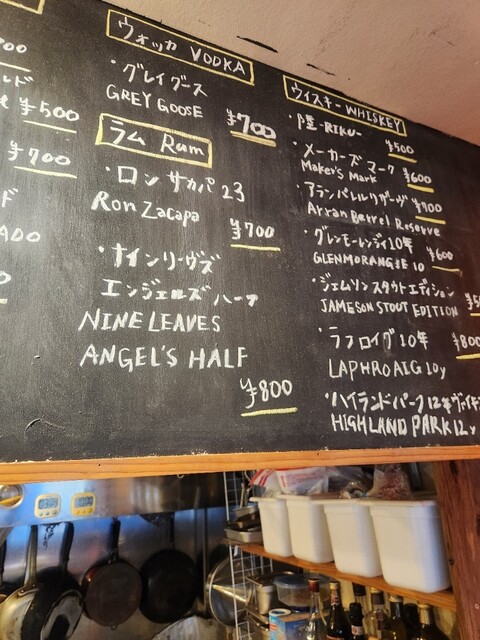 ド
¥500
¥700
ド
ADO
ウォッカ VODKA
・グレイグース
GREY GOOSE
¥700
ラム Rum
・ロン サカパ 23
Ron Zacapa
¥700
・ナインリーヴズ
エンジェルズ ハーフ
NINE LEAVES
ANGEL'S HALF
¥800
ウィスキー WHISKEY
・陸-RIKU-
¥500
・メーカーズ マーク
Maker's Mark
¥600
・アランバレルリザーヴ
¥700
Arran Barrel Reserve
・グレンモーレンジィ10年
¥600
GLENMORANGIE 10
・ジェムソンスタウトエディション
JAMESON STOUT EDITION
・ラフロイグ 10年
¥800
LAPHROAIG 10y
・ハイランドパーク12年ヴァイキ
HIGHLAND PARK 12y